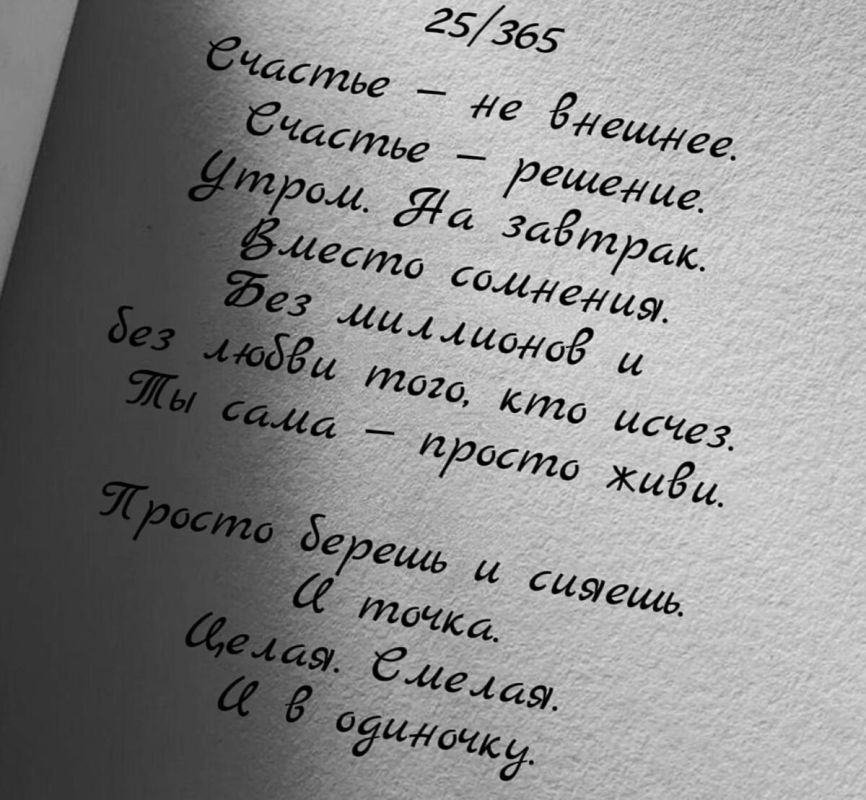 25/365
Счастье — не внешнее.
Счастье — решение.
Утром. На завтрак.
Вместо сомнения.
Без миллионов и
без любви того, кто исчез.
Ты сама — просто живи.
Просто берешь и сияешь.
И точка.
Целая. Смелая.
И в одиночку.